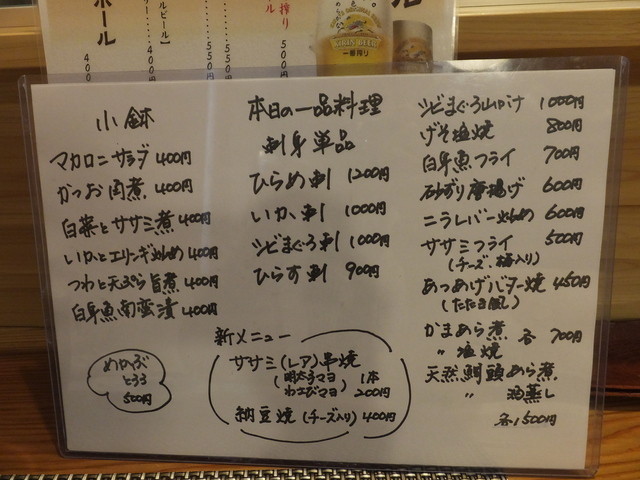 搾り
500円
550円
550円
400円
KIRIN BEER
一番搾り
小鉢
マカロニサラダ 400円
かつお角煮 400円
白菜とササミ煮 400円
いかとエリンギ炒め 400円
つわと天ぷら旨煮 400円
白身魚南蛮漬 400円
めかぶ
とろろ
500円
本日の一品料理
刺身単品
ひらめ刺 1200円
いか刺 1000円
シビまぐろ刺 1000円
ひらす刺 900円
新メニュー
ササミ(レア)串焼
(明太子マヨ
わさびマヨ) 1本 200円
納豆焼(チーズ入り) 400円
シビまぐろ山かけ 1000円
げそ塩焼 800円
白身魚フライ 700円
砂ずり唐揚げ 600円
ニラレバー炒め 600円
ササミフライ 500円
(チーズ、梅入り)
あつあげバター焼 450円
(たたき風)
かまあら煮
〃 塩焼 各 700円
天然鯛頭あら煮、
〃 酒蒸し
各1500円